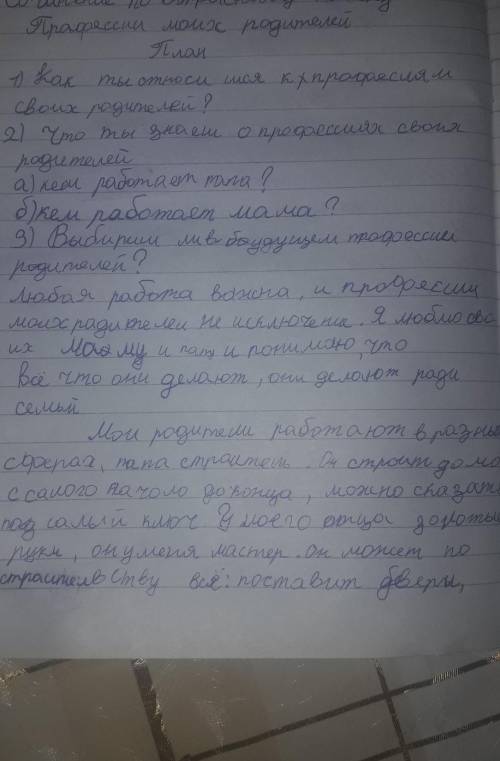 Профессии моих родителей
План
1) Как ты относишся к профессиям
своих родителей?
2) Что ты знаеш о профессиях своих
родителей
а) кем работает папа?
б) кем работает мама?
3) Выбириш ли в будущем профессии
родителей?
Любая работа важна, и профессии
моих радителей не исключения. Я люблю сво
их маму и папу и понимаю, что
всё что они делают, они делают ради
семьй
Мои родители работают в разных
сферах, папа строитель. Он строит дома
с самого начало до конца, можно сказать
под самый ключ У моего отца золотые
руки, он у меня мастер. он может по
строителвству всё: поставит двери,